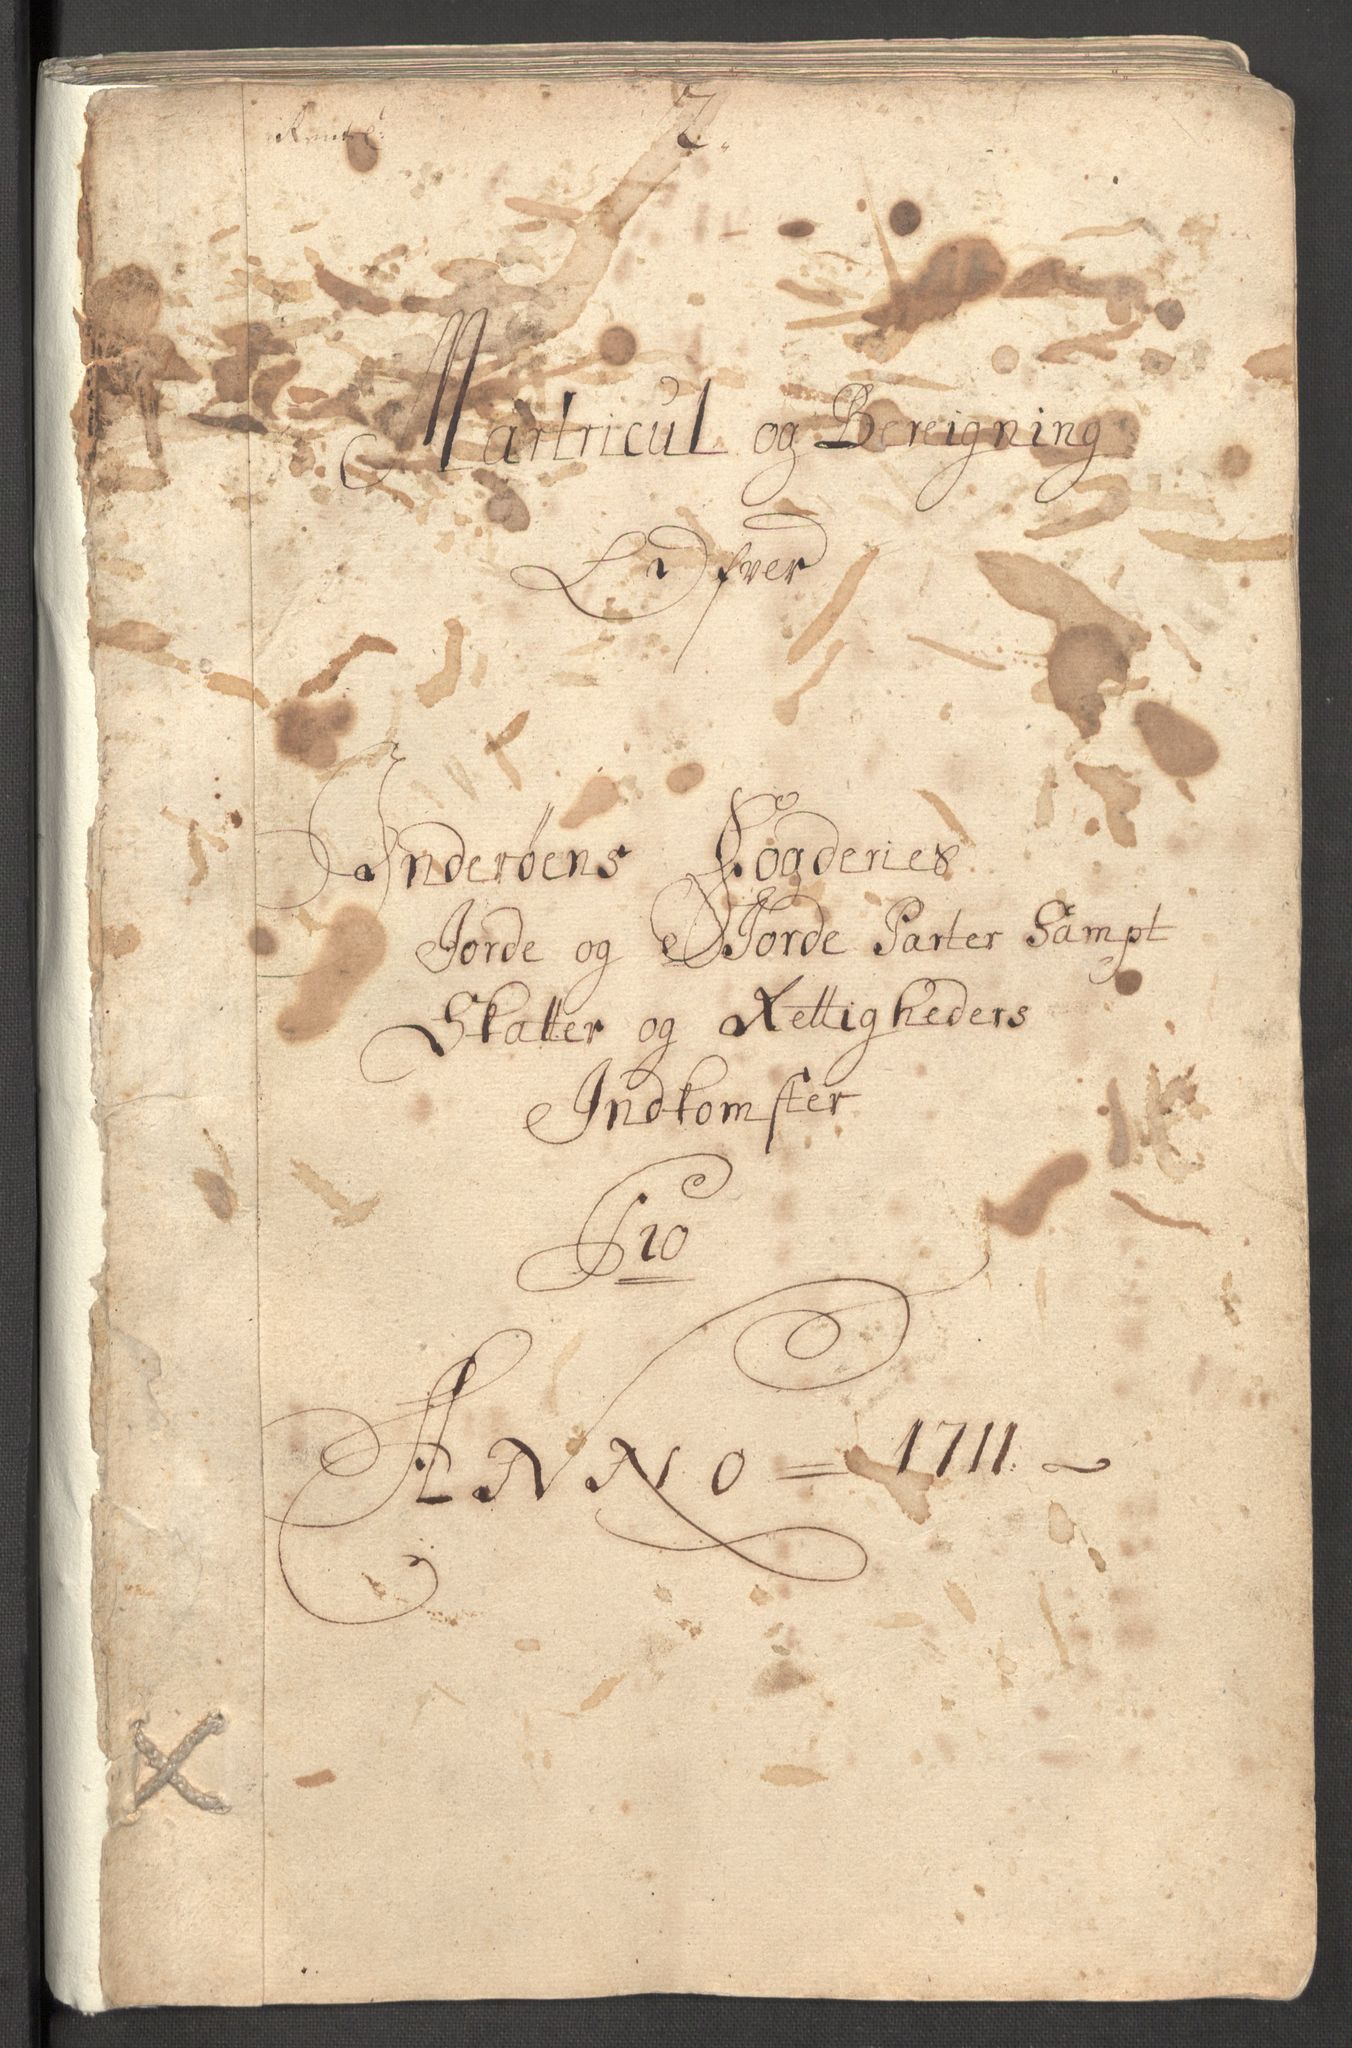 7.
Martricul og Bereigning
Ofver
Inderøens Fögderies
Jorde og Jorde Parter Sampt
Skatter og Rettigheders
Indkomster
Pro
ANNO = 1711.